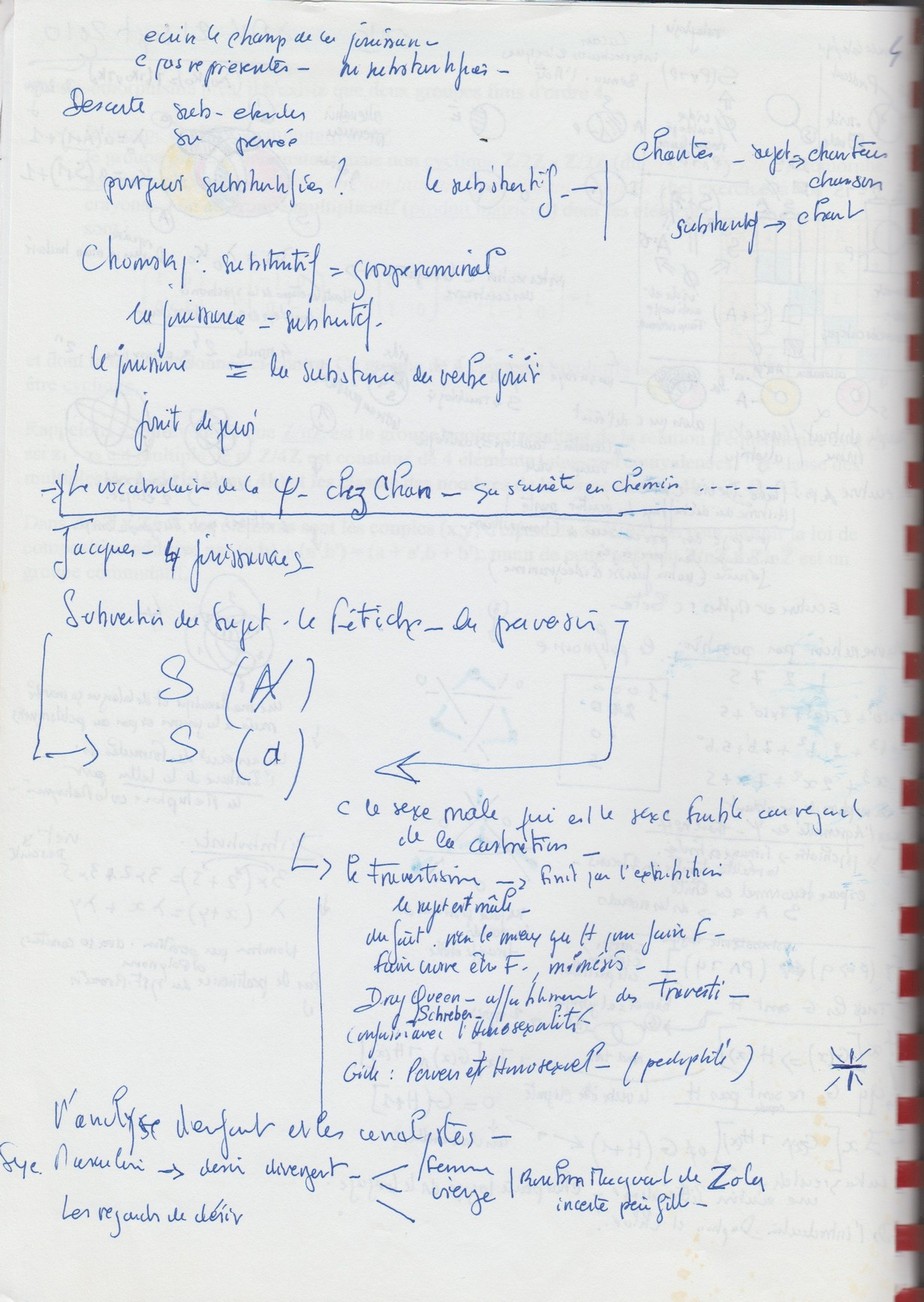 4
écrire le champ de la jouissance
c pas représentés - ni substantifiés -
Descarte sub- etendue
sub pensée
pourquoi substantifiées ?
le substantif -
Chanter - sujet => chanteur
chanson
substantif -> chant
Chomsky : substantif = groupe nominal
la jouissance = substantif.
le jouissance = la substance du verbe jouir
jouit de quoi
-> Le vocabulaire de la φ - chez Chan - en chemin - - - - -
Jacques - 4 jouissances
Subversion du sujet - le fétiche - la perversion
S (A̸)
S (a)
c le sexe male qui est le sexe faible au regard
de la castration -
le travestisme -> finit par l'exhibition
le sujet est mâle -
du fait . rien le mieux que H pour faire F -
faire croire être F . mimésis - -
Drag Queen - des Travesti -
Schreber -
confusion avec l'Homosexualité
Gide : Pervers et Homosexuel - ( pédophilie )
L'analyse d'enfant et les analystes -
Sexe Masculin -> désir divergent - < femme
vierge | Rougon Macquart de Zola
inceste père fille -
Les regards de désir